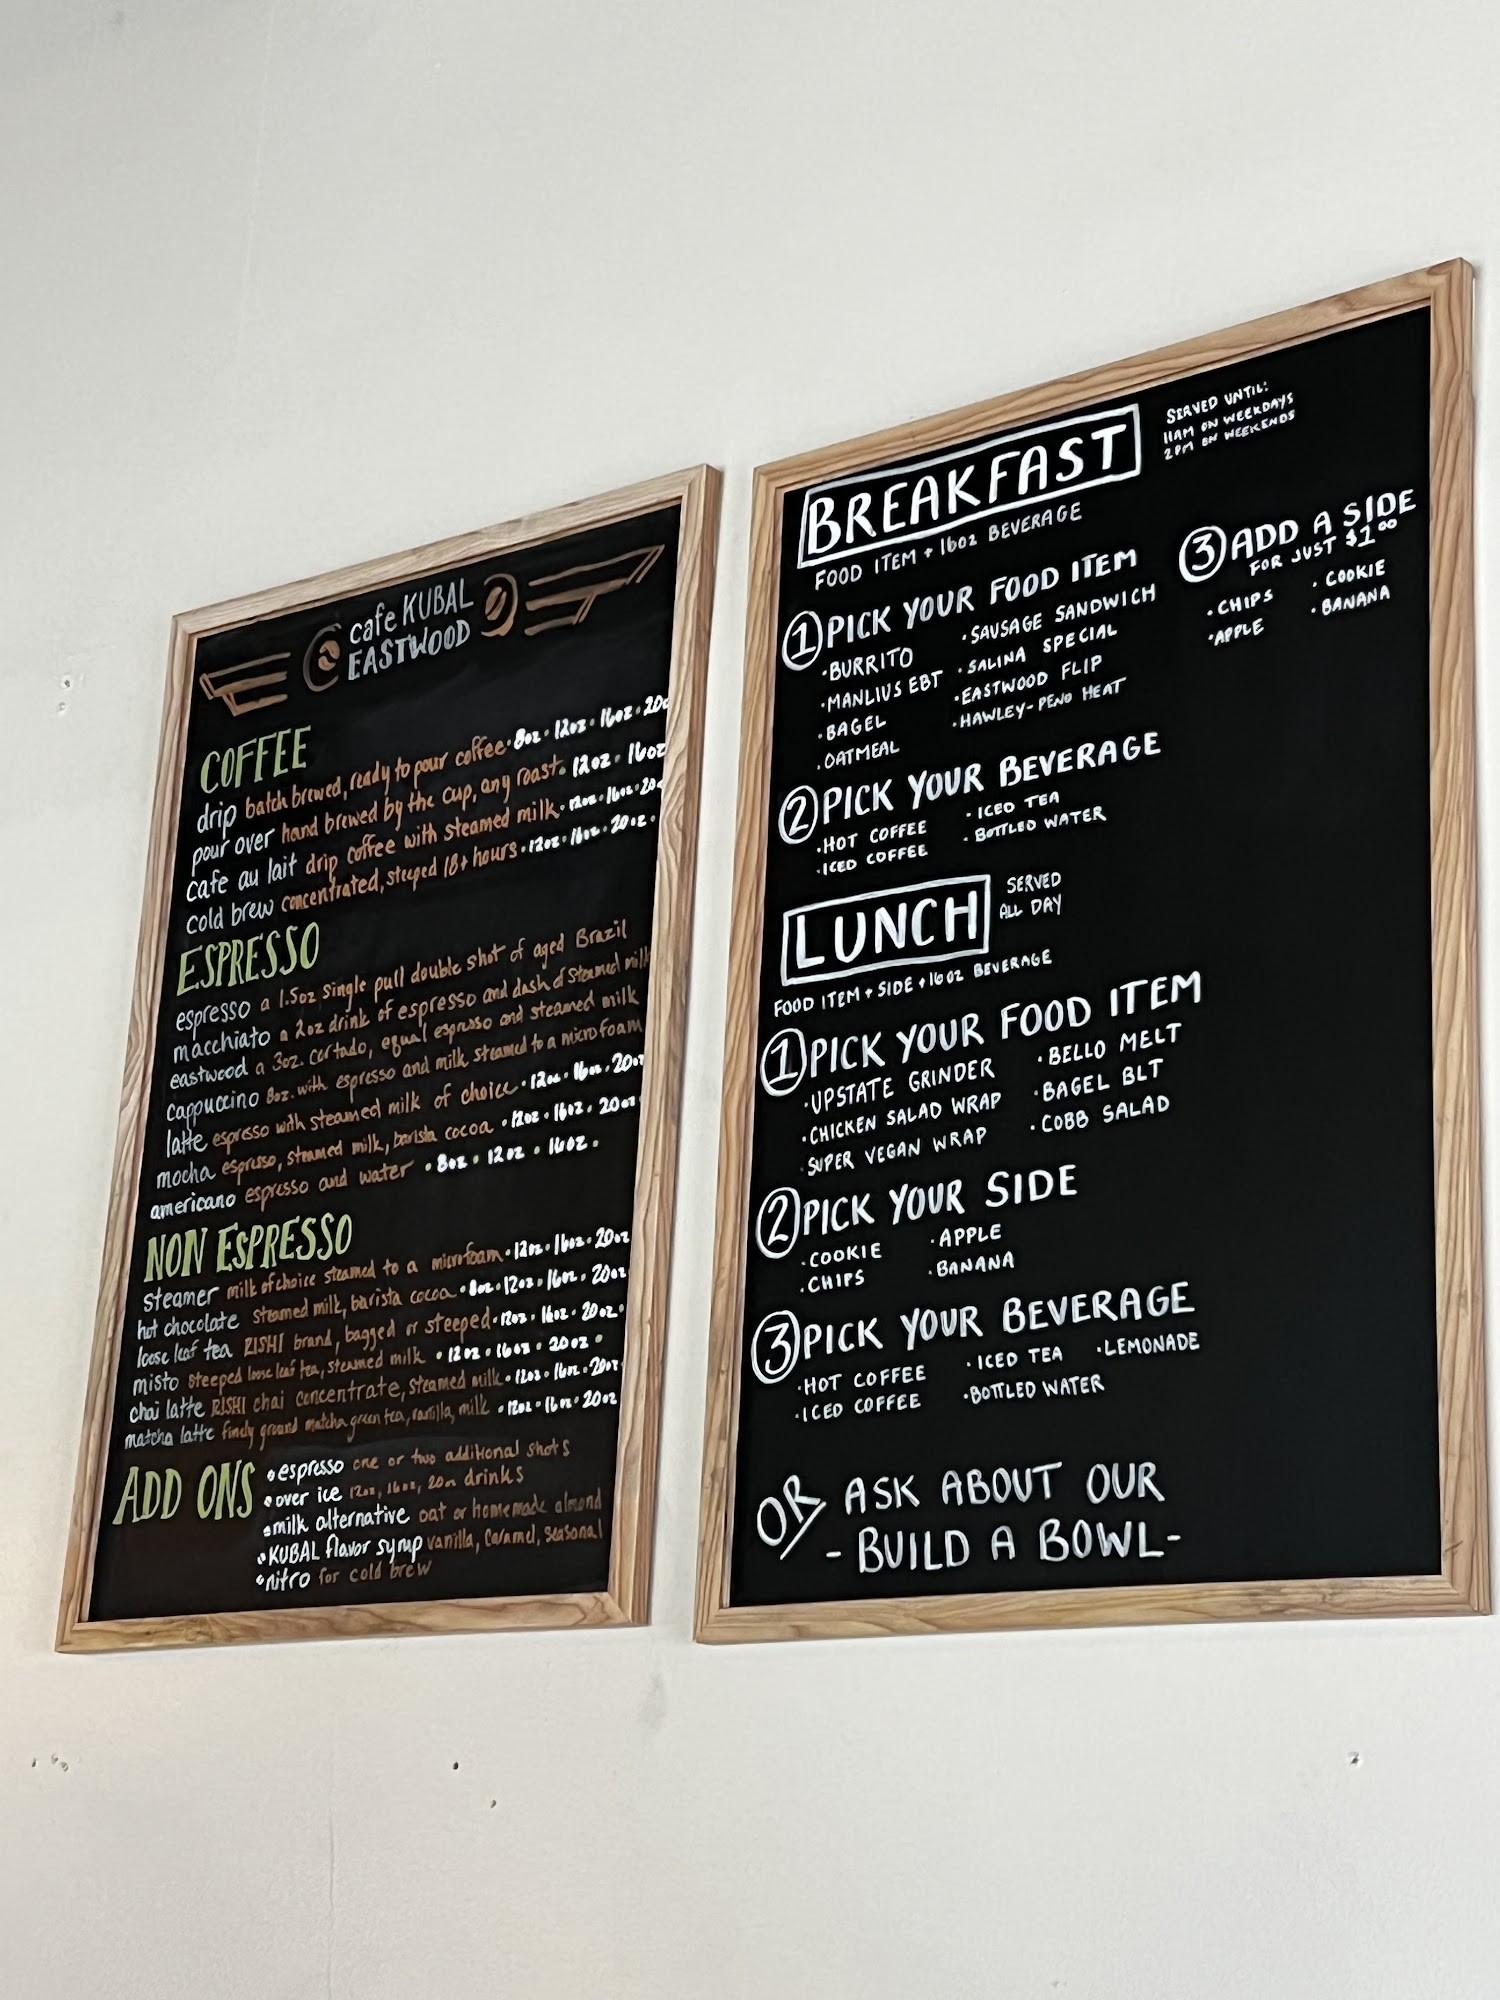 cafe KUBAL
EASTWOOD
COFFEE
drip batch brewed, ready to pour coffee • 8oz • 12oz • 16oz • 20o
pour over hand brewed by the cup, any roast • 12oz • 16oz
cafe au lait drip coffee with steamed milk • 12oz • 16oz • 20o
cold brew concentrated, steeped 18+ hours • 12oz • 16oz • 20oz •
ESPRESSO
espresso a 1.5oz single pull double shot of aged Brazil
macchiato a 2oz drink of espresso and dash of steamed milk
eastwood a 3oz. cortado, equal espresso and steamed milk
cappuccino 8oz. with espresso and milk steamed to a microfoam
latte espresso with steamed milk of choice • 12oz • 16oz • 20oz
mocha espresso, steamed milk, barista cocoa • 12oz • 16oz • 20oz
americano espresso and water • 8oz • 12oz • 16oz •
NON ESPRESSO
steamer milk of choice steamed to a microfoam • 12oz • 16oz • 20oz
hot chocolate steamed milk, barista cocoa • 8oz • 12oz • 16oz • 20oz
loose leaf tea RISHI brand, bagged or steeped • 12oz • 16oz • 20oz •
misto steeped loose leaf tea, steamed milk • 12oz • 16oz • 20oz •
chai latte RISHI chai concentrate, steamed milk • 12oz • 16oz • 20oz
matcha latte finely ground matcha green tea, vanilla, milk • 12oz • 16oz • 20oz
ADD ONS
• espresso one or two additional shots
• over ice 12oz, 16oz, 20oz drinks
• milk alternative oat or homemade almond
• KUBAL flavor syrup vanilla, caramel, seasonal
• nitro for cold brew
BREAKFAST
SERVED UNTIL:
11AM ON WEEKDAYS
2PM ON WEEKENDS
FOOD ITEM + 16oz BEVERAGE
1 PICK YOUR FOOD ITEM
• BURRITO
• MANLIUS EBT
• BAGEL
• OATMEAL
• SAUSAGE SANDWICH
• SALINA SPECIAL
• EASTWOOD FLIP
• HAWLEY-PENO HEAT
2 PICK YOUR BEVERAGE
• HOT COFFEE
• ICED COFFEE
• ICED TEA
• BOTTLED WATER
3 ADD A SIDE
FOR JUST $1.00
• CHIPS
• APPLE
• COOKIE
• BANANA
LUNCH
SERVED
ALL DAY
FOOD ITEM + SIDE + 16oz BEVERAGE
1 PICK YOUR FOOD ITEM
• UPSTATE GRINDER
• CHICKEN SALAD WRAP
• SUPER VEGAN WRAP
• BELLO MELT
• BAGEL BLT
• COBB SALAD
2 PICK YOUR SIDE
• COOKIE
• CHIPS
• APPLE
• BANANA
3 PICK YOUR BEVERAGE
• HOT COFFEE
• ICED COFFEE
• ICED TEA
• BOTTLED WATER
• LEMONADE
OR ASK ABOUT OUR
- BUILD A BOWL -